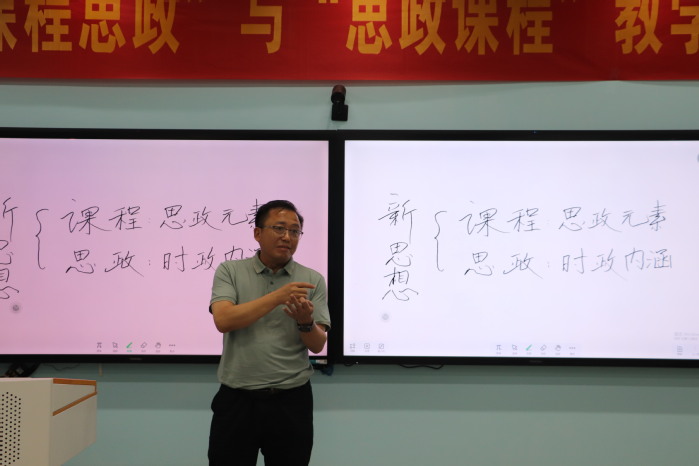 课程思政” 与 “思政课程” 教学
新思想
课程：思政元素
思政：时政内涵
新思想
课程：思政元素
思政：时政内涵